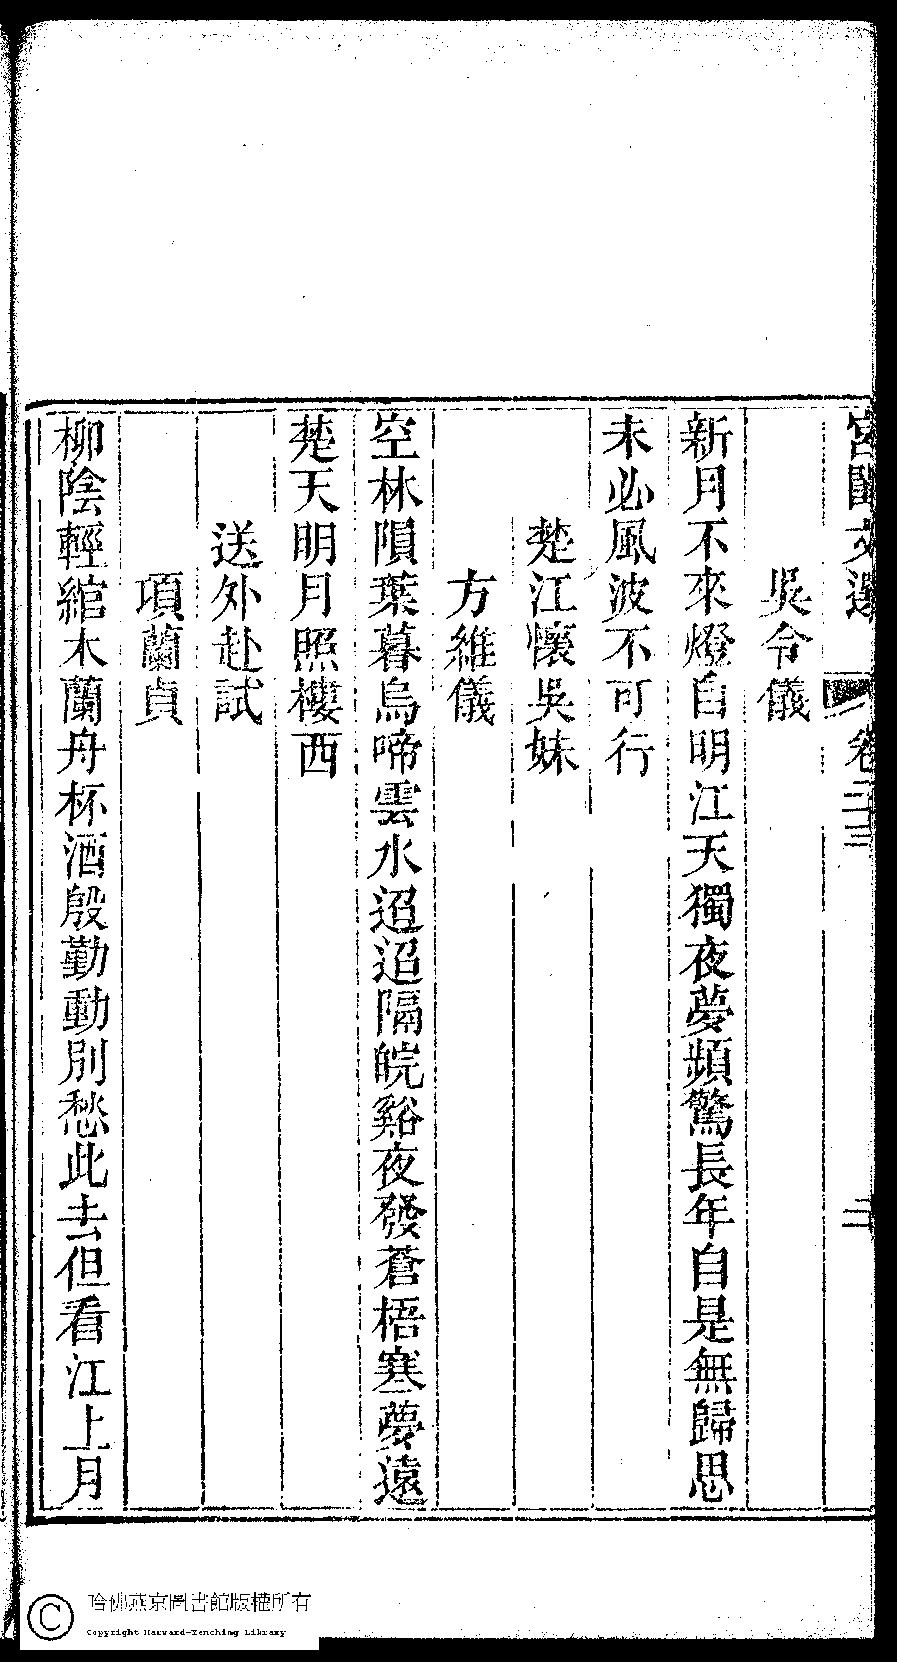 宮閨文選 卷二十三 二
吳令儀
新月不來燈自明江天獨夜夢頻驚長年自是無歸思
未必風波不可行
楚江懷吳妹
方維儀
空林隕葉暮烏啼雲水迢迢隔皖谿夜發蒼梧寒夢遠
楚天明月照樓西
送外赴試
項蘭貞
柳陰輕綰木蘭舟杯酒殷勤動別愁此去但看江上月
哈佛燕京圖書館版權所有
Copyright Harvard-Yenching Library